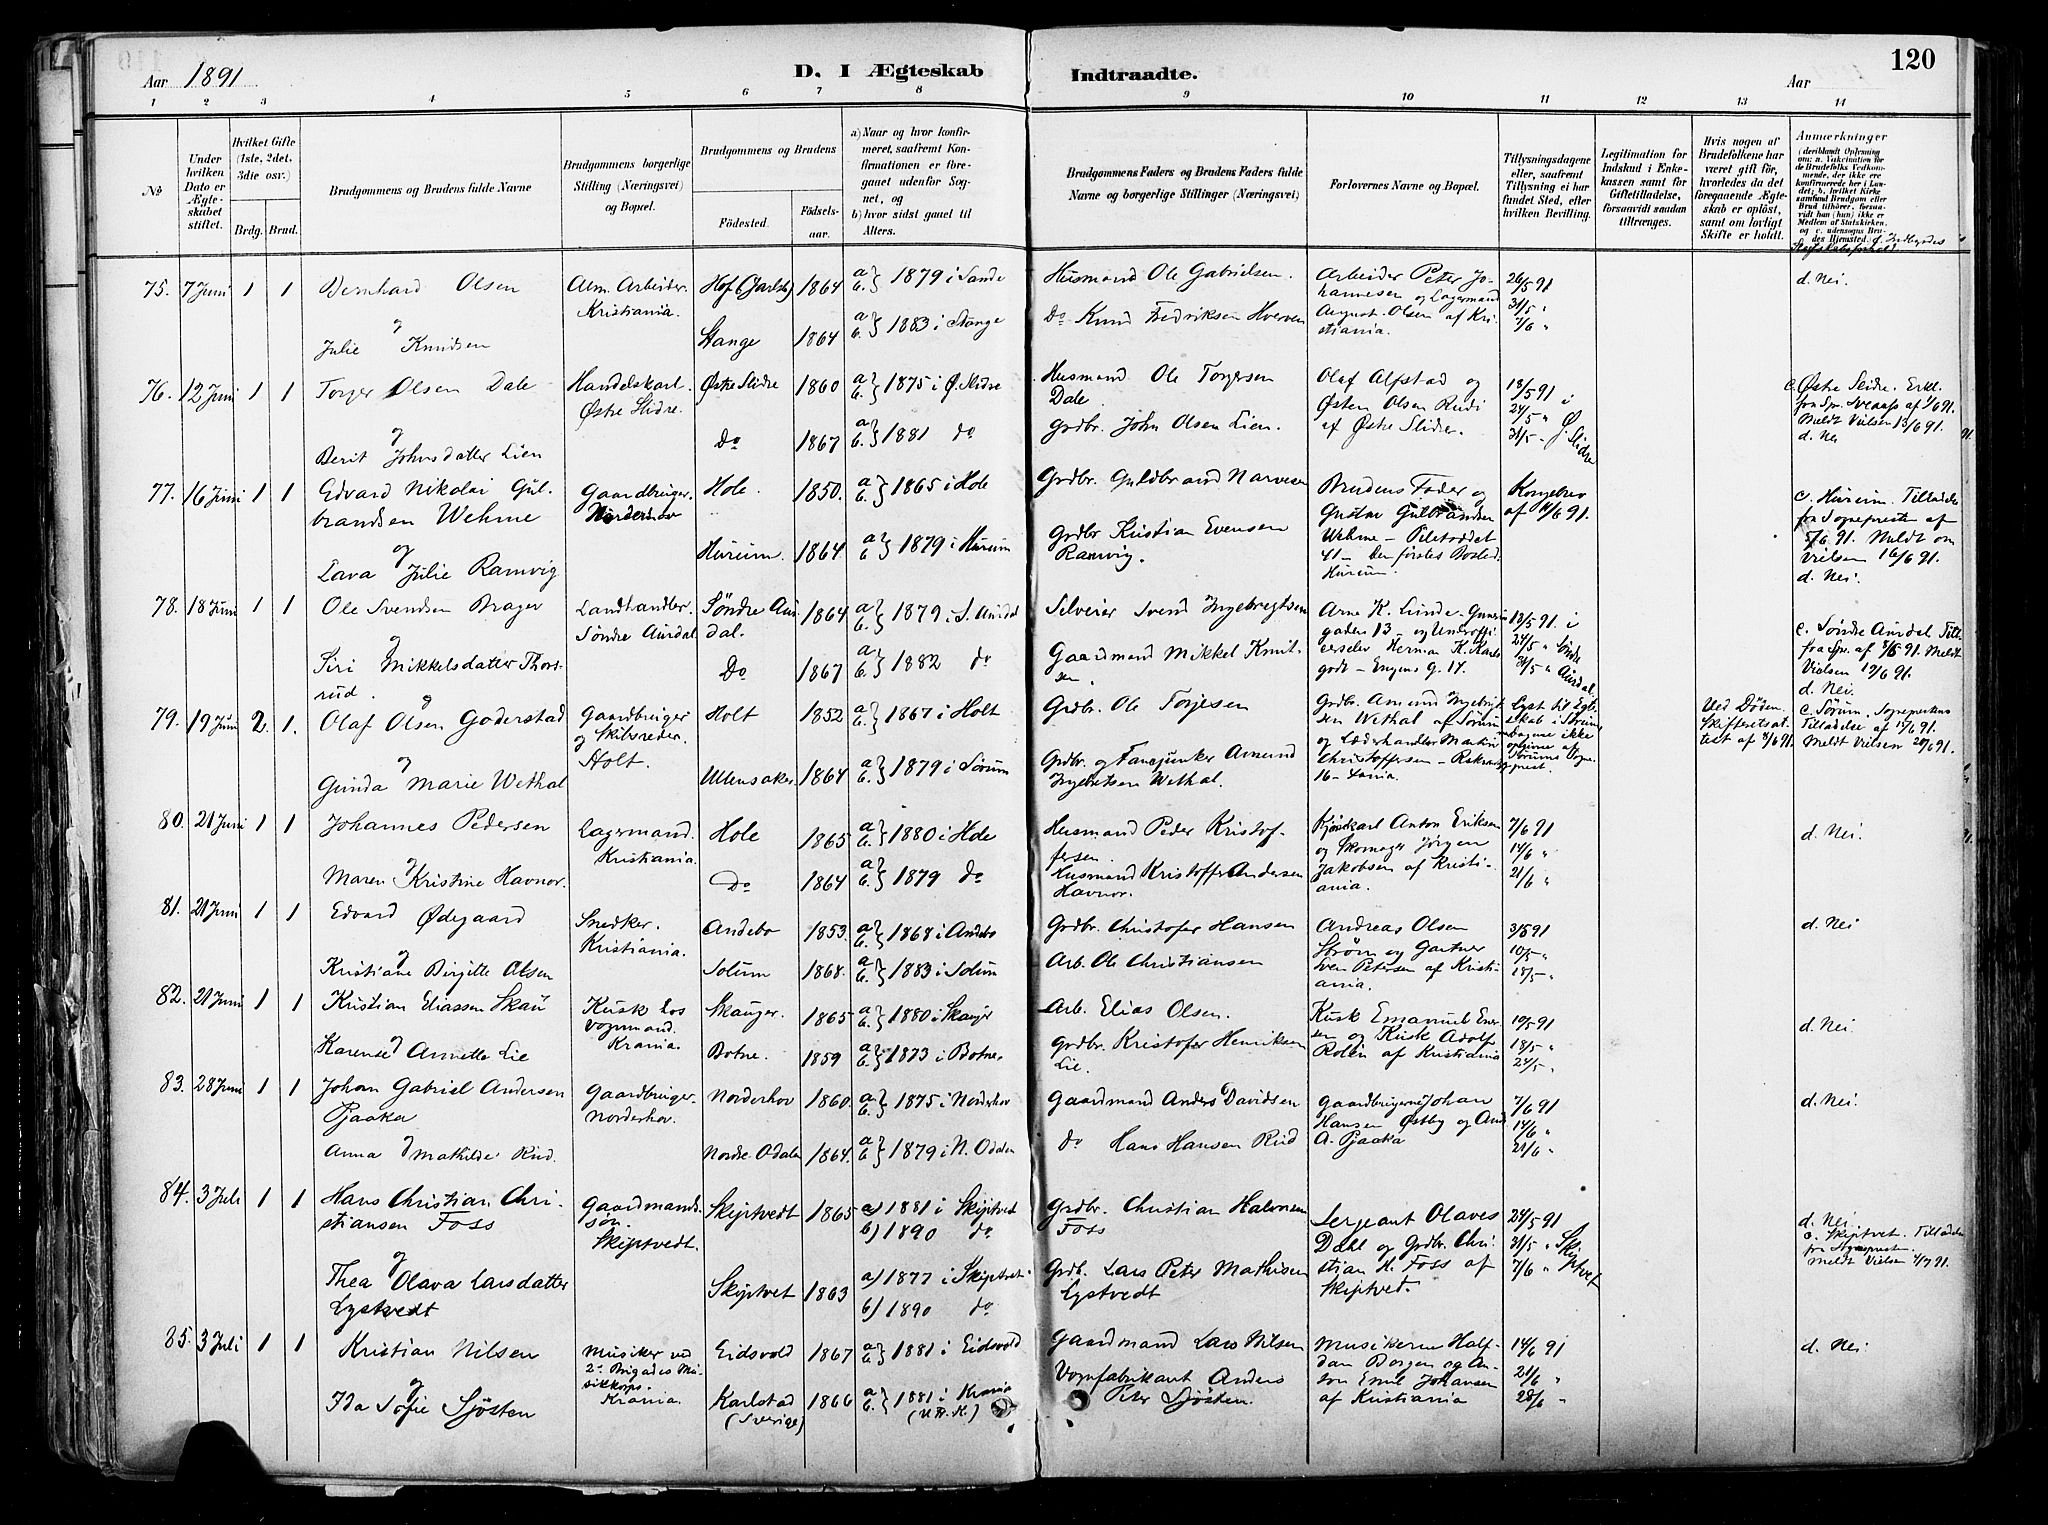 120
Aar 1891
D. I Ægteskab Indtraadte.
Aar
1 2 3 4 5 6 7 8 9 10 11 12 13 14
No.
Under hvilken Dato er Ægteskabet stiftet.
Hvilket Gifte (1ste, 2det, 3die osv.)
Brdg. Brud.
Brudgommens og Brudens fulde Navne
Brudgommens borgerlige Stilling (Næringsvei) og Bopæl.
Brudgommens og Brudens
Fødested. Fødselsaar.
a) Naar og hvor konfirmeret, saafremt Konfirmationen er foregaaet udenfor Sognet, og
b) hvor sidst gaaet til Alters.
Brudgommens Faders og Brudens Faders fulde Navne og borgerlige Stillinger (Næringsvei)
Forlovernes Navne og Bopæl.
Tillysningsdagene eller, saafremt Tillysning ei har fundet Sted, efter hvilken Bevilling.
Legitimation for Indskud i Enkekassen samt for Giftetilladelse, forsaavidt saadan tiltrænges.
Hvis nogen af Brudefolkene har været gift før, hvorledes da det foregaaende Ægteskab er opløst, samt om lovligt Skifte er holdt.
Anmærkninger
75. 7 Juni 1 1 Bernhard Olsen Alm. Arbeider. Kristiania. Hof (Jarlsb) 1864 a b } 1879 i Sande Husmand Ole Gabrielsen. Arbeider Peter Johannesen og Lagermand August Olsen af Kristiania. 26/5 91 31/5 " 7/6 " d. Nei.
og
Julie Knudsen Stange 1864 a b. } 1883 i Stange Do Knud Fredriksen Hverven
76. 12 Juni 1 1 Torger Olsen Dale Handelskarl. Østre Slidre. Østre Slidre 1860 a b } 1875 i Ø. Slidre Husmand Ole Torgersen Dale. Olaf Alfstad og Østen Olsen Rudi af Østre Slidre. 18/5 91 i 24/5 " 31/5 " Ø. Slidre c. Østre Slidre. Erkl. fra Spr. af 1/6 91. Meldt Vielsen 13/6 91. d. Nei
og
Berit Johnsdatter Lien Do 1867 a b. } 1881 do Grdbr. John Olsen Lien.
77. 16 Juni 1 1 Edvard Nikolai Gulbrandsen Wehme Gaardbruger. Norderhov Hole. 1850. a b } 1865 i Hole Grdbr. Guldbrand Narvesen Brudens Fader og Gustav Gulbrandsen Wehme - Pilestrædet 41 - den førstes Bosted Hurum. Kongebrev af 14/6 91. c. Hurum. Tilladelse fra Sognepresten af 5/6 91. Meldt om Vielsen 16/6 91. d. Nei.
og
Lava Julie Ramvig Hurum. 1864. a b } 1879 i Hurum Grdbr Kristian Evensen Ramvig.
78. 18 Juni 1 1 Ole Svendsen Brager Landhandler. Søndre Aurdal Søndre Aurdal. 1864 a b. } 1879 i S. Aurdal Selveier Svend Ingebregtsen Arne K. Lunde - 13 - og Herman K. - Engens g. 17. 18/5 91. i 24/5 " Søndre 31/5 " Aurdal. c. Søndre Aurdal. Till. fra Spr. af 91. Meldt Vielsen 19/6 91. d. Nei.
og
Siri Mikkelsdatter Thorsrud. Do 1867 a b. } 1882 do Gaardmand Mikkel Knutsen.
79. 19 Juni 2. 1. Olaf Olsen Goderstad Gaardbruger og Skibsreder. Holt. Holt 1852 a b. } 1867 i Holt Grdbr. Ole Torjesen. Grdbr. Amund Ingebrigtsen Wethal af Sørum og Læderhandler Martin Christoffersen - 16 - Lania. Lyst til Egteskab i Sørum, Dagene ikke opgivne af Sørums Sogneprest. Ved Døden. Skifteretsattest af 8/6 91. c. Sørum. Sogneprestens Tilladelse af 17/6 91. Meldt Vielsen 20/6 91.
og
Gunda Marie Wethal Ullensaker 1864 a b } 1879 i Sørum Grdbr. og Fanejunker Amund Ingebretsen Wethal.
80. 21 Juni 1 1 Johannes Pedersen Lagermand. Kristiania. Hole 1865 a b. } 1880 i Hole Husmand Peder Kristoffersen. Kjørekarl Anton Eriksen og Skomagr Jørgen Jakobsen af Kristiania. 7/6 91 14/6 " 21/6 " d. Nei.
og
Maren Kristine Havnor. Do 1864 a b } 1879 do Husmand Kristoffer Andersen Havnor.
81. 21 Juni 1 1 Edvard Ødegaard Snedker. Kristiania. Andebo 1853. a b. } 1868 i Andebo Grdbr. Christofer Hansen Andreas Olsen Strøm og Gartner Sven Petersen af Kristiania. 3/5 91 10/5 " 18/5 " d. Nei
og
Kristiane Birgitte Olsen Solum 1868. a b. } 1883 i Solum Arb. Ole Christiansen
82. 21 Juni 1 1 Kristian Eliassen Skau Kusk hos Vognmand. Krania. Skauger. 1865 a b. } 1880 i Skauger Arb. Elias Olsen. Kusk Emanuel Enersen og Kusk Adolf Rolén af Kristiania 10/5 91 18/5 " 24/5 " d. Nei
og
Karen Annette Lie Botne. 1859 a b. } 1873 i Botne. Grdbr. Kristofer Henriksen Lie.
83. 28 Juni 1 1 Johan Gabriel Andersen Pjaaka Gaardbruger. Norderhov. Norderhov 1860. a b. } 1875 i Norderhov Gaardmand Anders Davidsen Gaardbrugerne Johan Hansen Østby og And. A. Pjaaka 7/6 91 14/6 " 21/6 " d. Nei.
og
Anna Mathilde Rud. Nordre Odalen 1864. a b } 1879 i N. Odalen do Hans Hansen Rud
84. 3 Juli 1 1 Hans Christian Christiansen Foss Gaardmandssøn. Skiptvedt. Skiptvedt 1865 a) 1881 i Skiptvedt b) 1890 do Grdbr. Christian Halvorsen Foss Sergeant Olaves Dahl og Grdbr. Christian H. Foss af Skiptvedt. 24/5 91 31/5 " 7/6 " Skiptvet d. Nei c. Skiptvet. Tilladelse fra Sognepresten. Meldt Vielsen 4/7 91.
og
Thea Olava Larsdatter Lystvedt Skiptvet 1863 a) 1877 i Skiptvet b) 1890 do Grdb. Lars Peter Mathisen Lystvedt
85. 3 Juli 1 1 Kristian Nilsen Musiker ved 2. Brigades Musikkorps. Krania. Eidsvold 1867 a b. } 1881 i Eidsvold Gaardmand Lars Nilsen Musikerne Halfdan Borgen og Anton Emil Johansen af Kristiania 14/6 91 21/6 " 28/6 " d. Nei
og
Ida Sofie Sjösten Karlstad (Sverige) 1866 a b. } 1881 i Krania Vognfabrikant Anders Peter Sjösten.